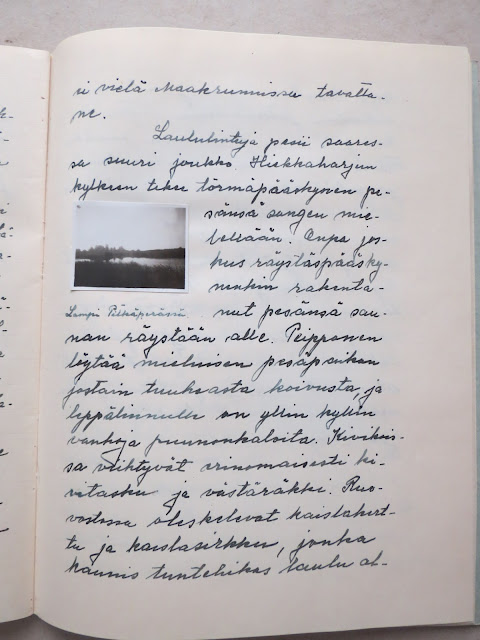 ei vielä Maakrunnissa tavatta-
ne.
Laululintuja pesii saares-
sa suuri joukko. Hiekkaharjun
kylkeen tekee törmäpääskynen pe-
sänsä sangen mie-
lellään. Onpa jos-
kus räystäspääsky-
nenkin rakenta-
nut pesänsä sau-
Lampi Pitkäperässä
nan räystään alle. Peipponen
löytää mieluisen pesäpaikan
jostain tuuheasta koivusta, ja
leppälinnulle on yllin kyllin
vanhoja puunonkaloita. Kivikois-
sa viihtyvät erinomaisesti ki-
vitasku ja västäräkki. Ruo-
vostossa oleskelevat kaislakert-
tu ja kaislasirkku, jonka
kaunis tuntehikas laulu al-